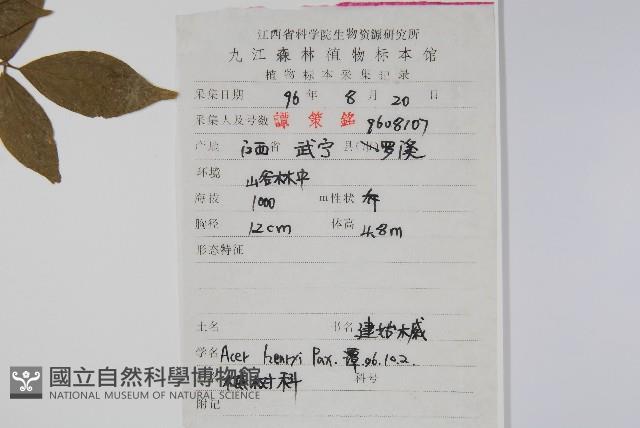 江西省科学院生物资源研究所
九江森林植物标本馆
植物标本采集记录
采集日期 96 年 8 月 20 日
采集人及号数 譚策銘 9608107
产地 江西省 武宁 县(市) 罗溪
环境 山谷林中
海拔 1000 m 性状
胸径 12cm 体高 4.8m
形态特征
土名 书名 建始槭
学名 Acer henryi Pax. 譚 96.10.2.
槭树科 科号
附记
國立自然科學博物館
NATIONAL MUSEUM OF NATURAL SCIENCE